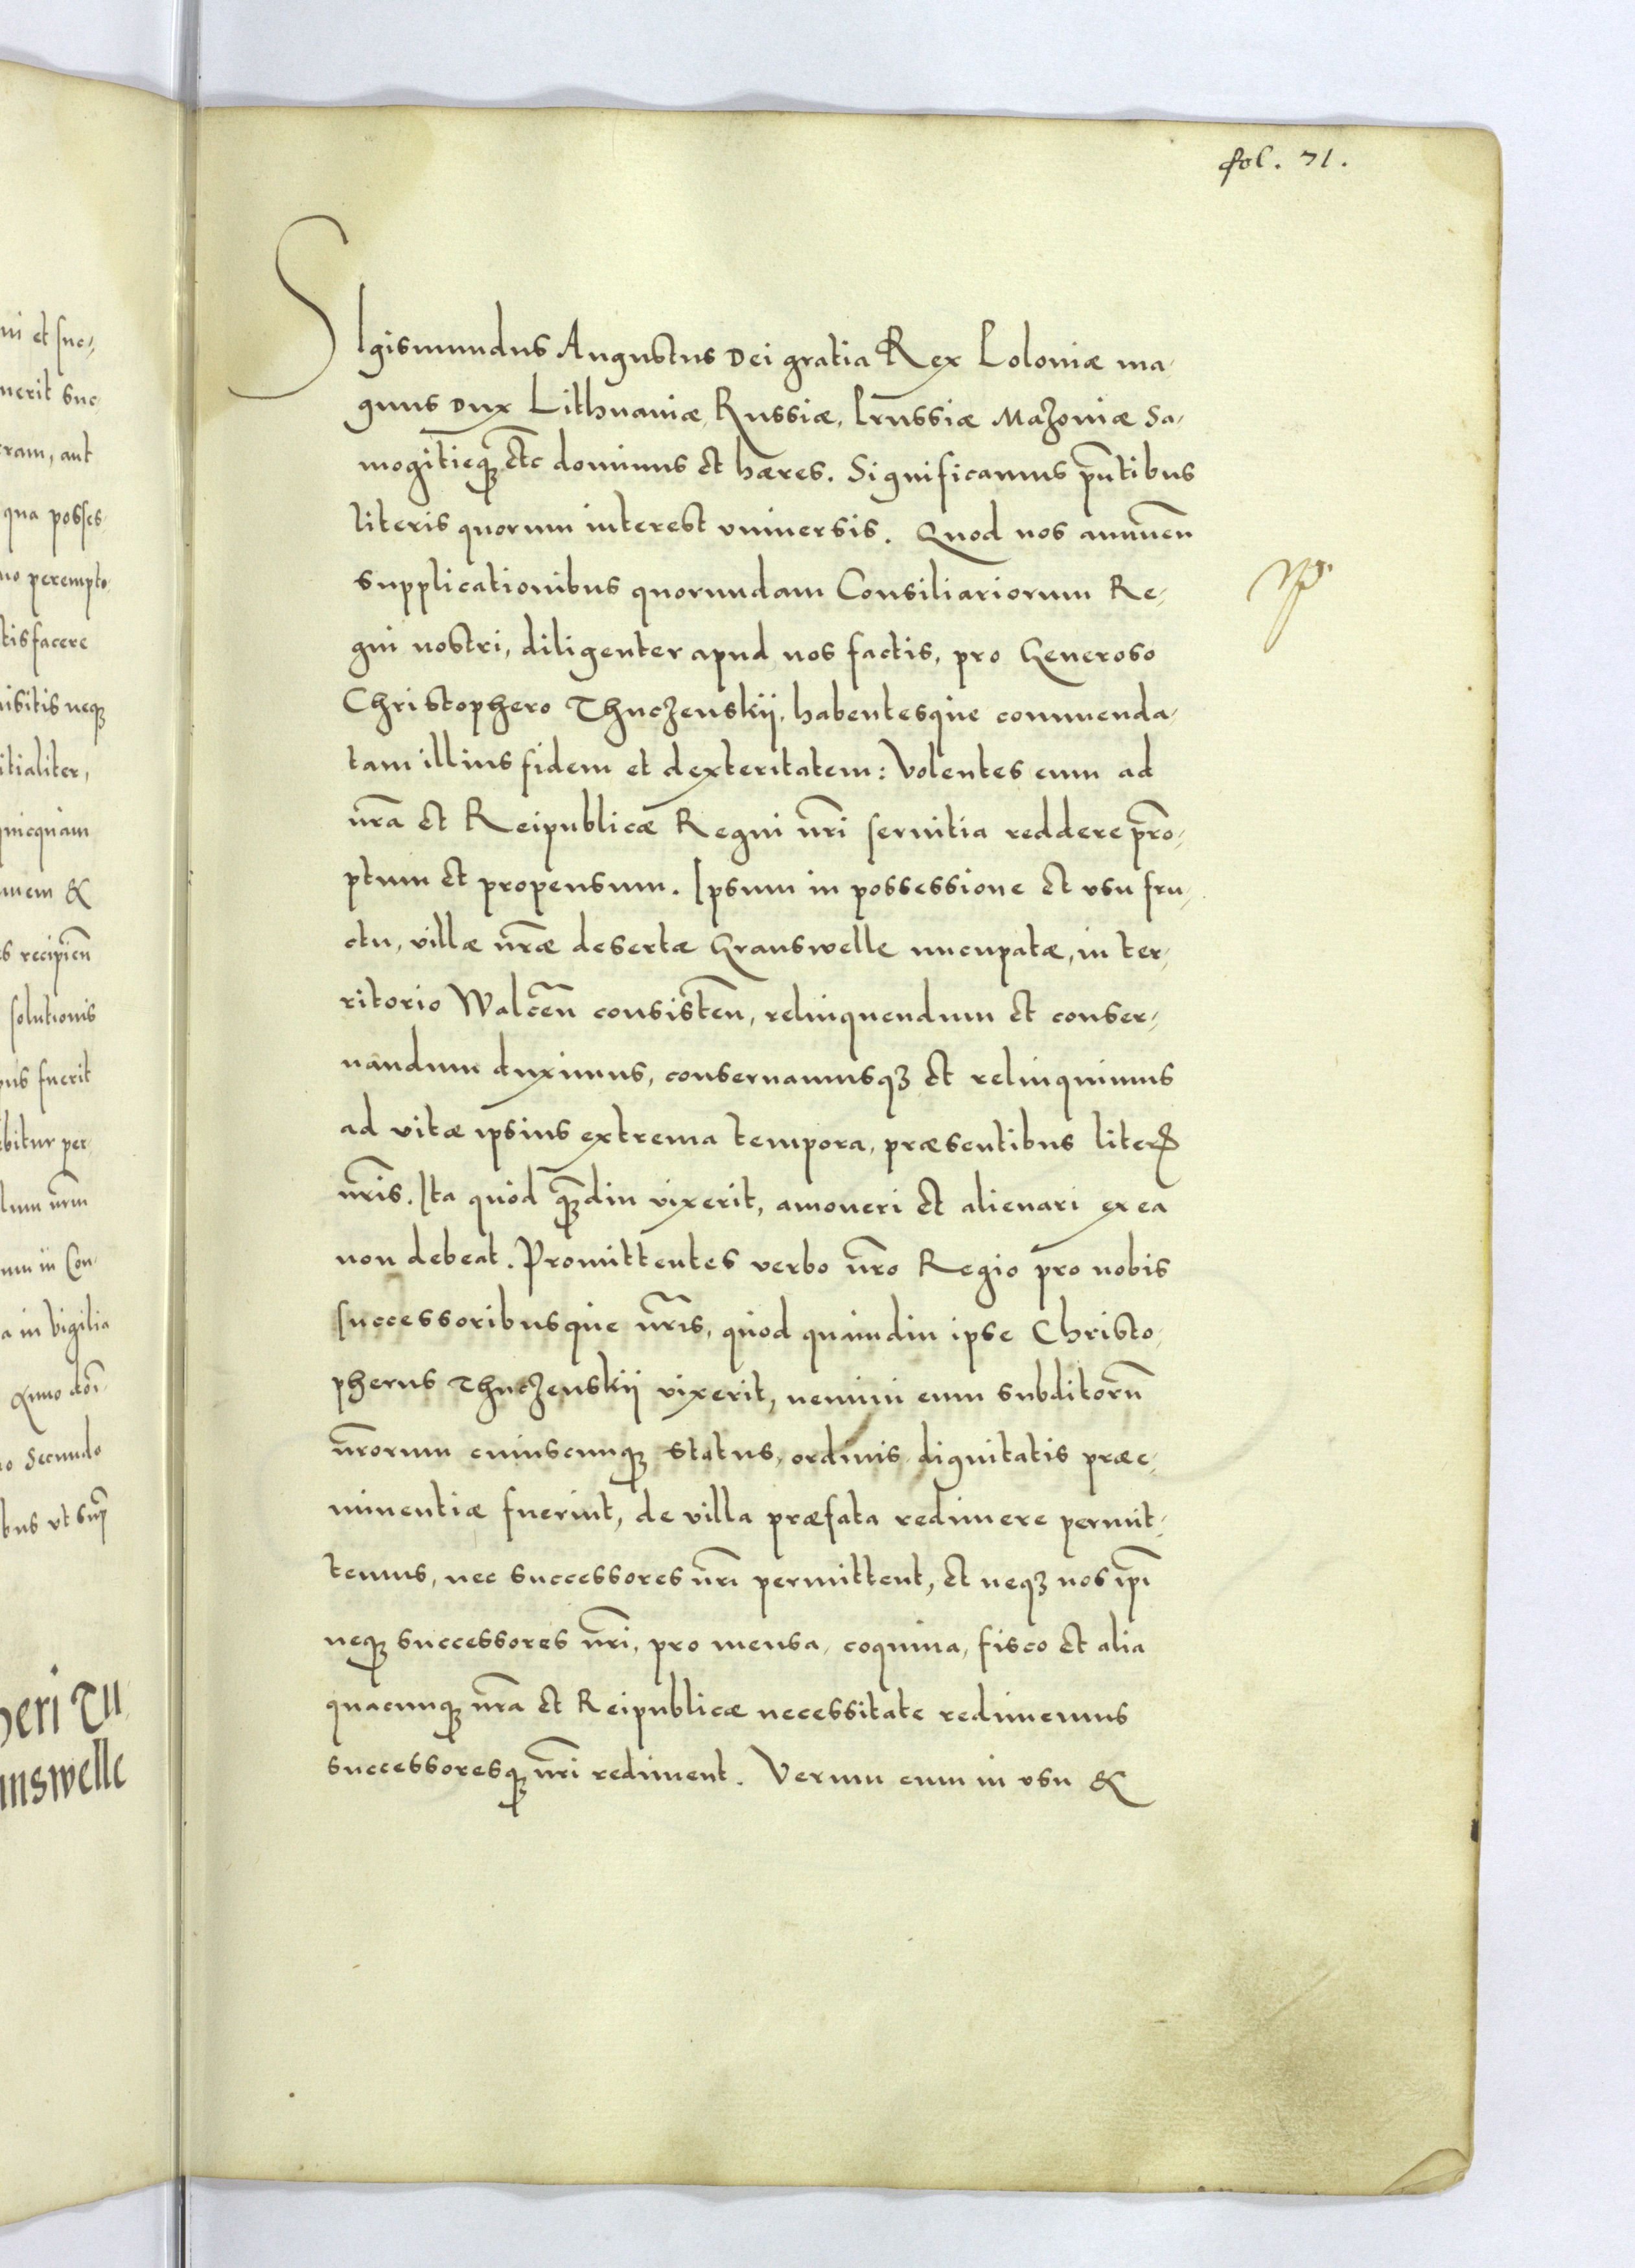 fol. 71.
SIgismundus Augustus Dei gratia Rex Poloniæ ma-
gnus Dux Lithuaniæ, Russiæ, Prussiæ Mazoviæ Sa-
mogitieqꝫ etc dominus et hæres. Significamus pñtibus
literis quorum interest vniuersis. Quod nos annueñ
supplicationibus quorundam Consiliariorum Re-
gni nostri, diligenter apud nos factis, pro Generoso
Christophero Thuczenskij, habentesque commenda-
tam illius fidem et dexteritatem: Volentes eum ad
nr̃a et Reipublicæ Regni nr̃i seruitia reddere pro-
ptum et propensum. Ipsum in possessione et vsu fru-
ctu, villæ nr̃æ desertæ Granswelle nucupatæ, in ter-
ritorio Walceñ consisteñ, relinquendum et conser-
uandum duximus, conseruamusqꝫ et relinquimus
ad vitæ ipsius extrema tempora, præsentibus literꝭ
nr̃is. Ita quod qꝫdiu vixerit, amoueri et alienari ex ea
non debeat. Promittentes verbo nr̃o Regio pro nobis
successoribusque nr̃is, quod quamdiu ipse Christo-
pherus Thuczenskij vixerit, nemini eum subditorũ
nr̃orum cuiuscunqꝫ status, ordinis dignitatis præe-
minentiæ fuerint, de villa præfata redimere permit-
temus, nec successores nr̃i permittent, et neqꝫ nos ip̃i
neqꝫ successores nr̃i, pro mensa, coquina, fisco et alia
quacunqꝫ nr̃a et Reipublicæ necessitate redimemus
successoresqꝫ nr̃i rediment. Verum eum in vsu &
ni et suc-
uerit suc
ram, aut
qua posses-
no perempto
tisfacere
isitis neqꝫ
itialiter,
quicquam
nuem &
s recipieñ
solutionis
us fuerit
bitur per
lum nr̃m
um in Con-
a in vigilia
Anno dõi-
o secundo
bus vt sup̃
heri Tu-
answelle